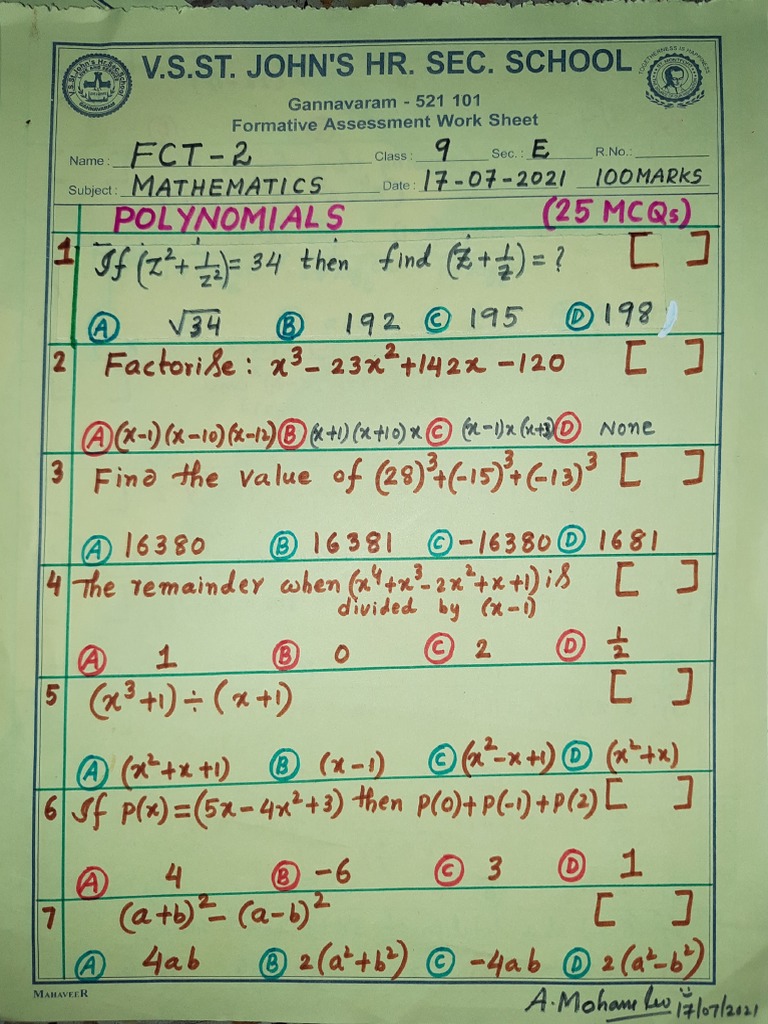 V.S.ST. JOHN'S HR. SEC. SCHOOL
Gannavaram - 521 101
Formative Assessment Work Sheet
Name : FCT-2 Class : 9 Sec. : E R.No.:
Subject : MATHEMATICS Date : 17-07-2021 100MARKS
POLYNOMIALS (25 MCQs)
1 If (z²+1/z²)=34 then find (z+1/z)=? [ ]
A √34 B 192 C 195 D 198
2 Factorise: x³-23x²+142x-120 [ ]
A (x-1)(x-10)(x-12) B (x+1)(x+10)x C (x-1)x(x+3) D None
3 Find the value of (28)³+(-15)³+(-13)³ [ ]
A 16380 B 16381 C -16380 D 1681
4 The remainder when (x⁴+x³-2x²+x+1) is [ ]
divided by (x-1)
A 1 B 0 C 2 D 1/2
5 (x³+1)÷(x+1) [ ]
A (x²+x+1) B (x-1) C (x²-x+1) D (x²+x)
6 If P(x)=(5x-4x²+3) then P(0)+P(-1)+P(2) [ ]
A 4 B -6 C 3 D 1
7 (a+b)²-(a-b)² [ ]
A 4ab B 2(a²+b²) C -4ab D 2(a²-b²)
MAHAVEER
A. Mohana Rao 17/07/2021